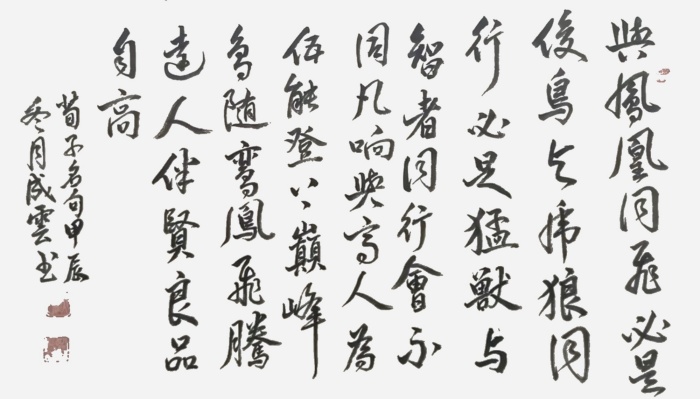 與鳳凰同飛必是
俊鳥与虎狼同
行必是猛獸与
智者同行會不
同凡响與高人為
伍能登上巔峰
鸟随鸞鳳飛騰
遠人伴賢良品
自高
荀子名句甲辰
冬月成雲书